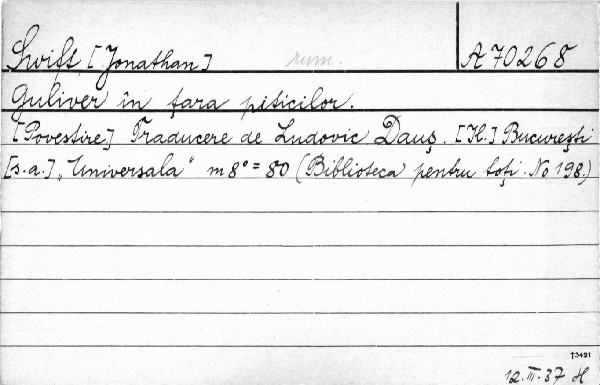 Swift, [Jonathan] rum. A 70268
Guliver în ţara piticilor.
[Povestire] Traducere de Ludovic Dauş. [H.] Bucureşti
[s.a.] „Universala" m8° = 80 (Biblioteca pentru toţi. No 198.)
T3421
12.III.37 H